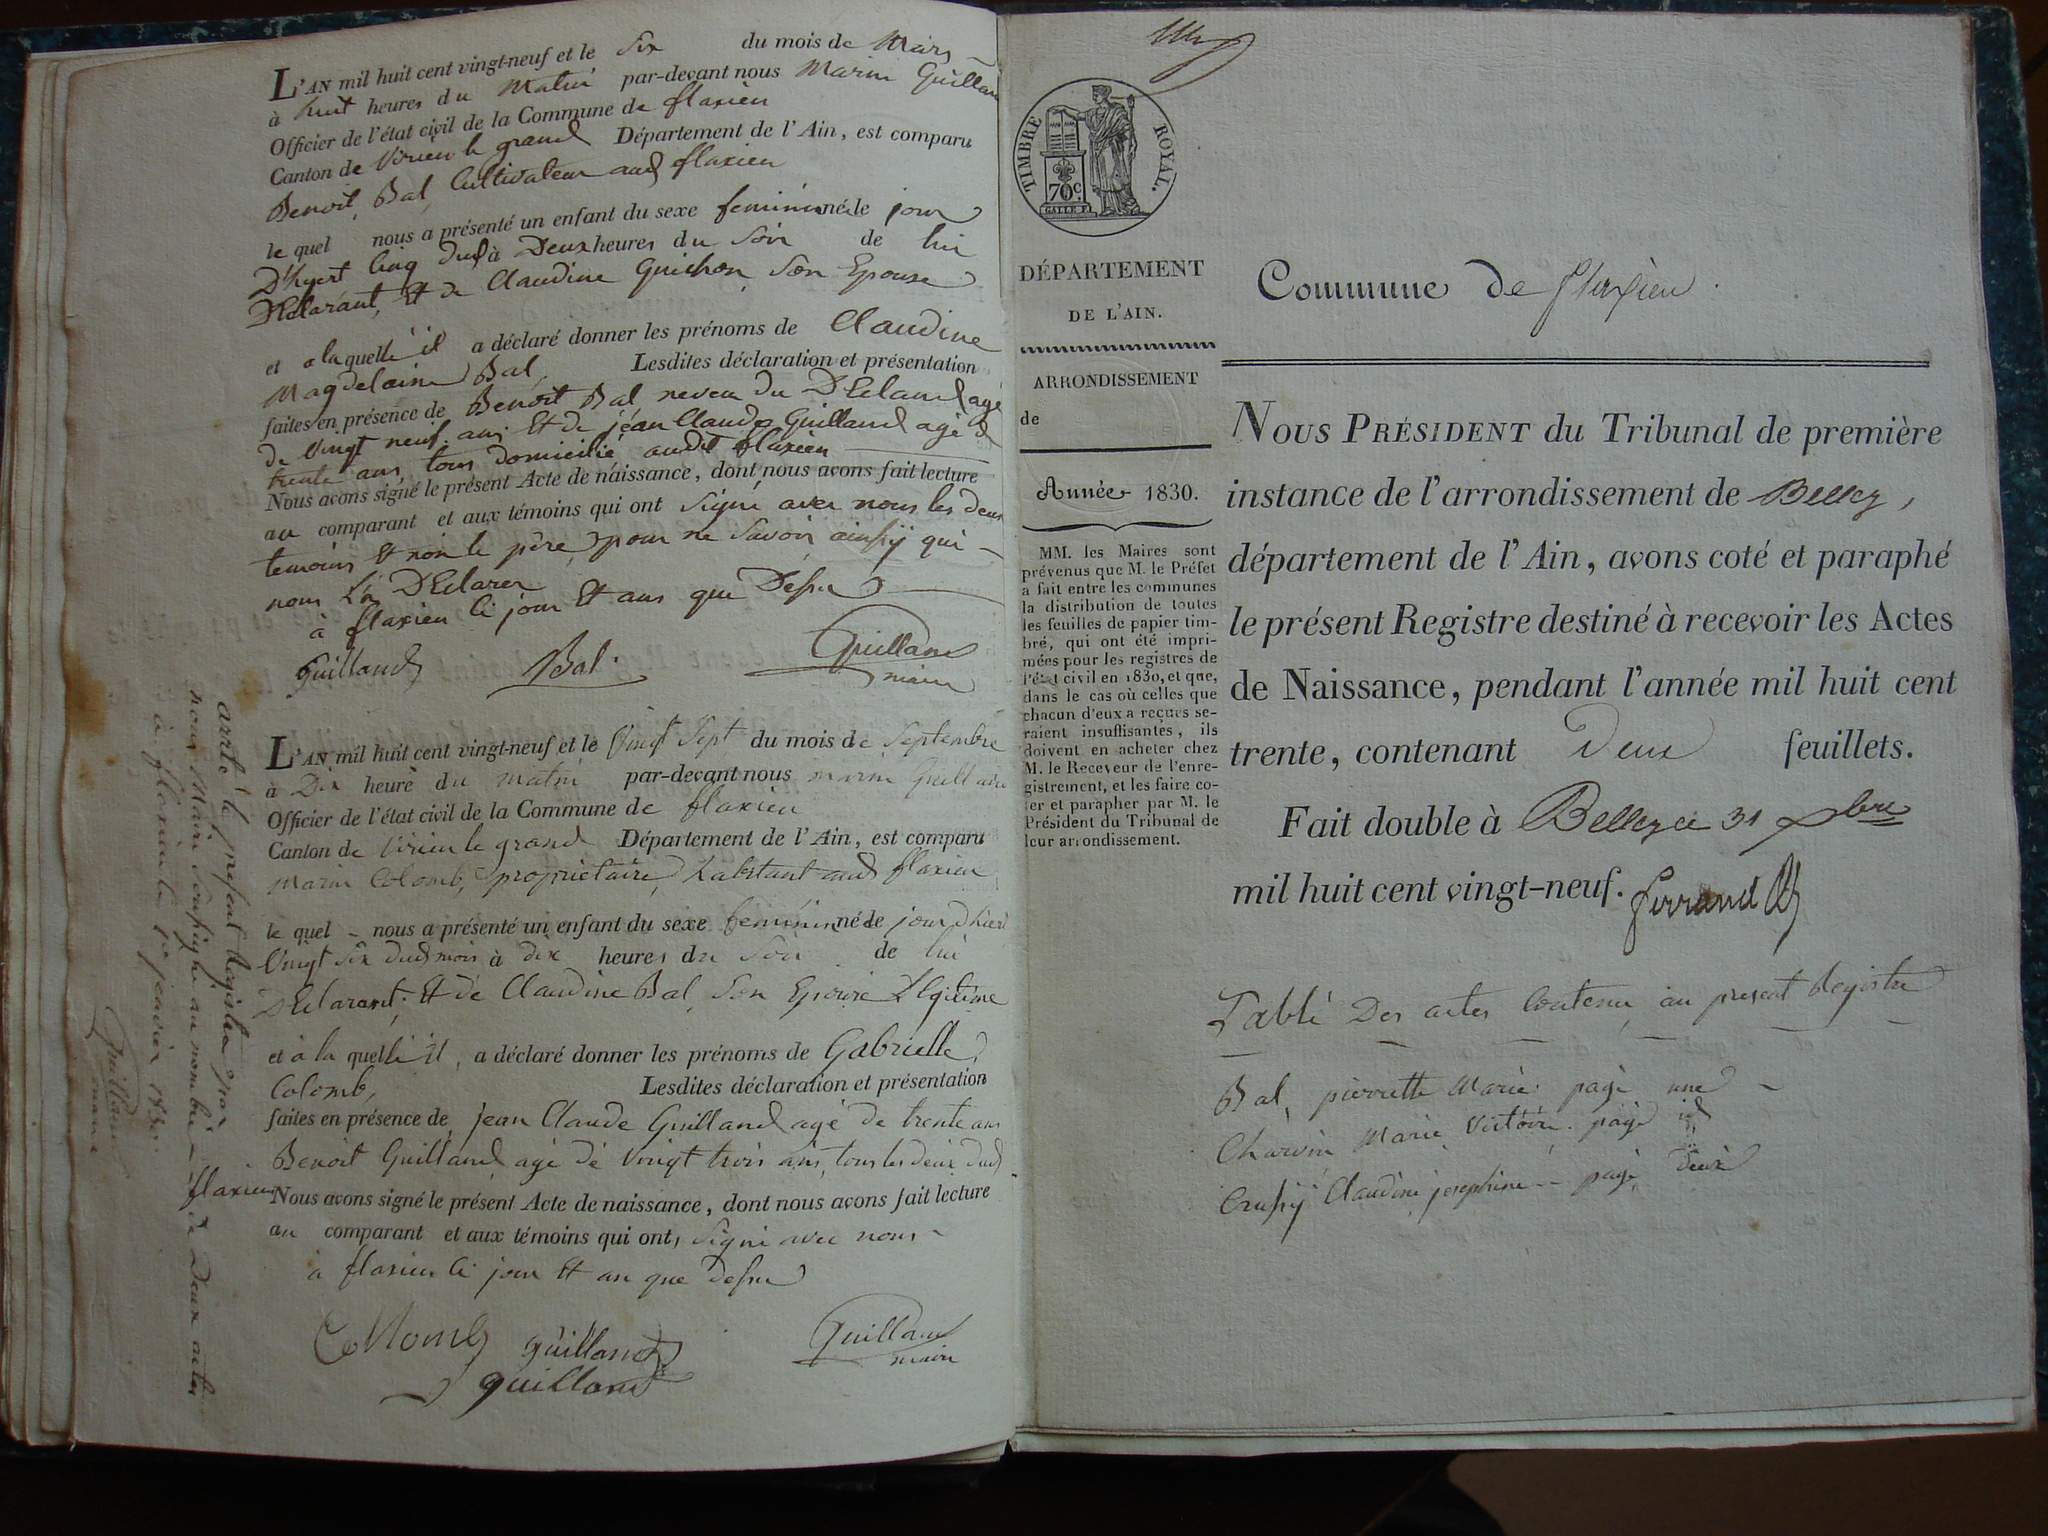 L'AN mil huit cent vingt-neuf et le Six du mois de Mars
à huit heures du Matin par-devant nous Marin Guilland
Officier de l'état civil de la Commune de flaxieu
Canton de Virieu le grand Département de l'Ain, est comparu
Benoit Bal, Cultivateur aud flaxieu
le quel nous a présenté un enfant du sexe feminin né le jour
D'hyert Cinq dud à Deux heures du Soir de lui
DEclarant, Et de Claudine Guichon, Son Epouse
et a la quelle il a déclaré donner les prénoms de Claudine
Magdelaine Bal, Lesdites déclaration et présentation
faites en présence de Benoit Bal neveu du DEclarant agé
de Vingt neuf ans Et de jéan Claude Guilland agé de
trente ans, tous domicilié audit flaxieu
Nous avons signé le présent Acte de naissance, dont nous avons fait lecture
au comparant et aux témoins qui ont Signé avec nous les deux
temoins Et non le père, pour ne Savoir ainsÿ qui
nous l'a DEclarer
à flaxieu le jour Et ans que Dessu
Guilland Bal Guilland
maire
L'AN mil huit cent vingt-neuf et le Vingt Sept du mois de Septembre
à Dix heure du matin par-devant nous marin Guilland
Officier de l'état civil de la Commune de flaxieu
Canton de Virieu le grand Département de l'Ain, est comparu
Marin Colomb, propriétaire, habitant aud flaxieu
le quel nous a présenté un enfant du sexe feminin né le jour d'hiert
Vingt Six dud mois à dix heures du Soir de lui
DEclarant, Et de Claudine Bal, Son Epouse LEgitime
et à la quelle il, a déclaré donner les prénoms de Gabrielle
Colomb, Lesdites déclaration et présentation
faites en présence de jean Claude Guilland agé de trente ans
Benoit Guilland agé de Vingt trois ans, tous les deux dud
flaxieu Nous avons signé le présent Acte de naissance, dont nous avons fait lecture
au comparant et aux témoins qui ont, Signé avec nous
à flaxieu le jour Et an que dessu
Collomb guilland Guilland
guilland maire
arrêté le présent Registre par
nous Maire Soussigné au nombre de Deux actes
à flaxieu le 1er janvier 1830
Guilland
maire
TIMBRE ROYAL.
70c
DÉPARTEMENT
DE L'AIN.
ARRONDISSEMENT
de
Année 1830.
MM. les Maires sont
prévenus que M. le Préfet
a fait entre les communes
la distribution de toutes
les feuilles de papier tim-
bré, qui ont été impri-
mées pour les registres de
l'état civil en 1830, et que,
dans le cas où celles que
chacun d'eux a reçues se-
raient insuffisantes, ils
doivent en acheter chez
M. le Receveur de l'enre-
gistrement, et les faire co-
ter et parapher par M. le
Président du Tribunal de
leur arrondissement.
Commune de flaxieu.
NOUS PRÉSIDENT du Tribunal de première
instance de l'arrondissement de Belley,
département de l'Ain, avons coté et paraphé
le présent Registre destiné à recevoir les Actes
de Naissance, pendant l'année mil huit cent
trente, contenant Deux feuillets.
Fait double à Belley ce 31 xbre
mil huit cent vingt-neuf. ferrand
Tablé Des actes Contenu au present Registre
Bal, pierrette Marie page une
Charvin Marie Victoire page id
Crussÿ Claudine josephine page Deux